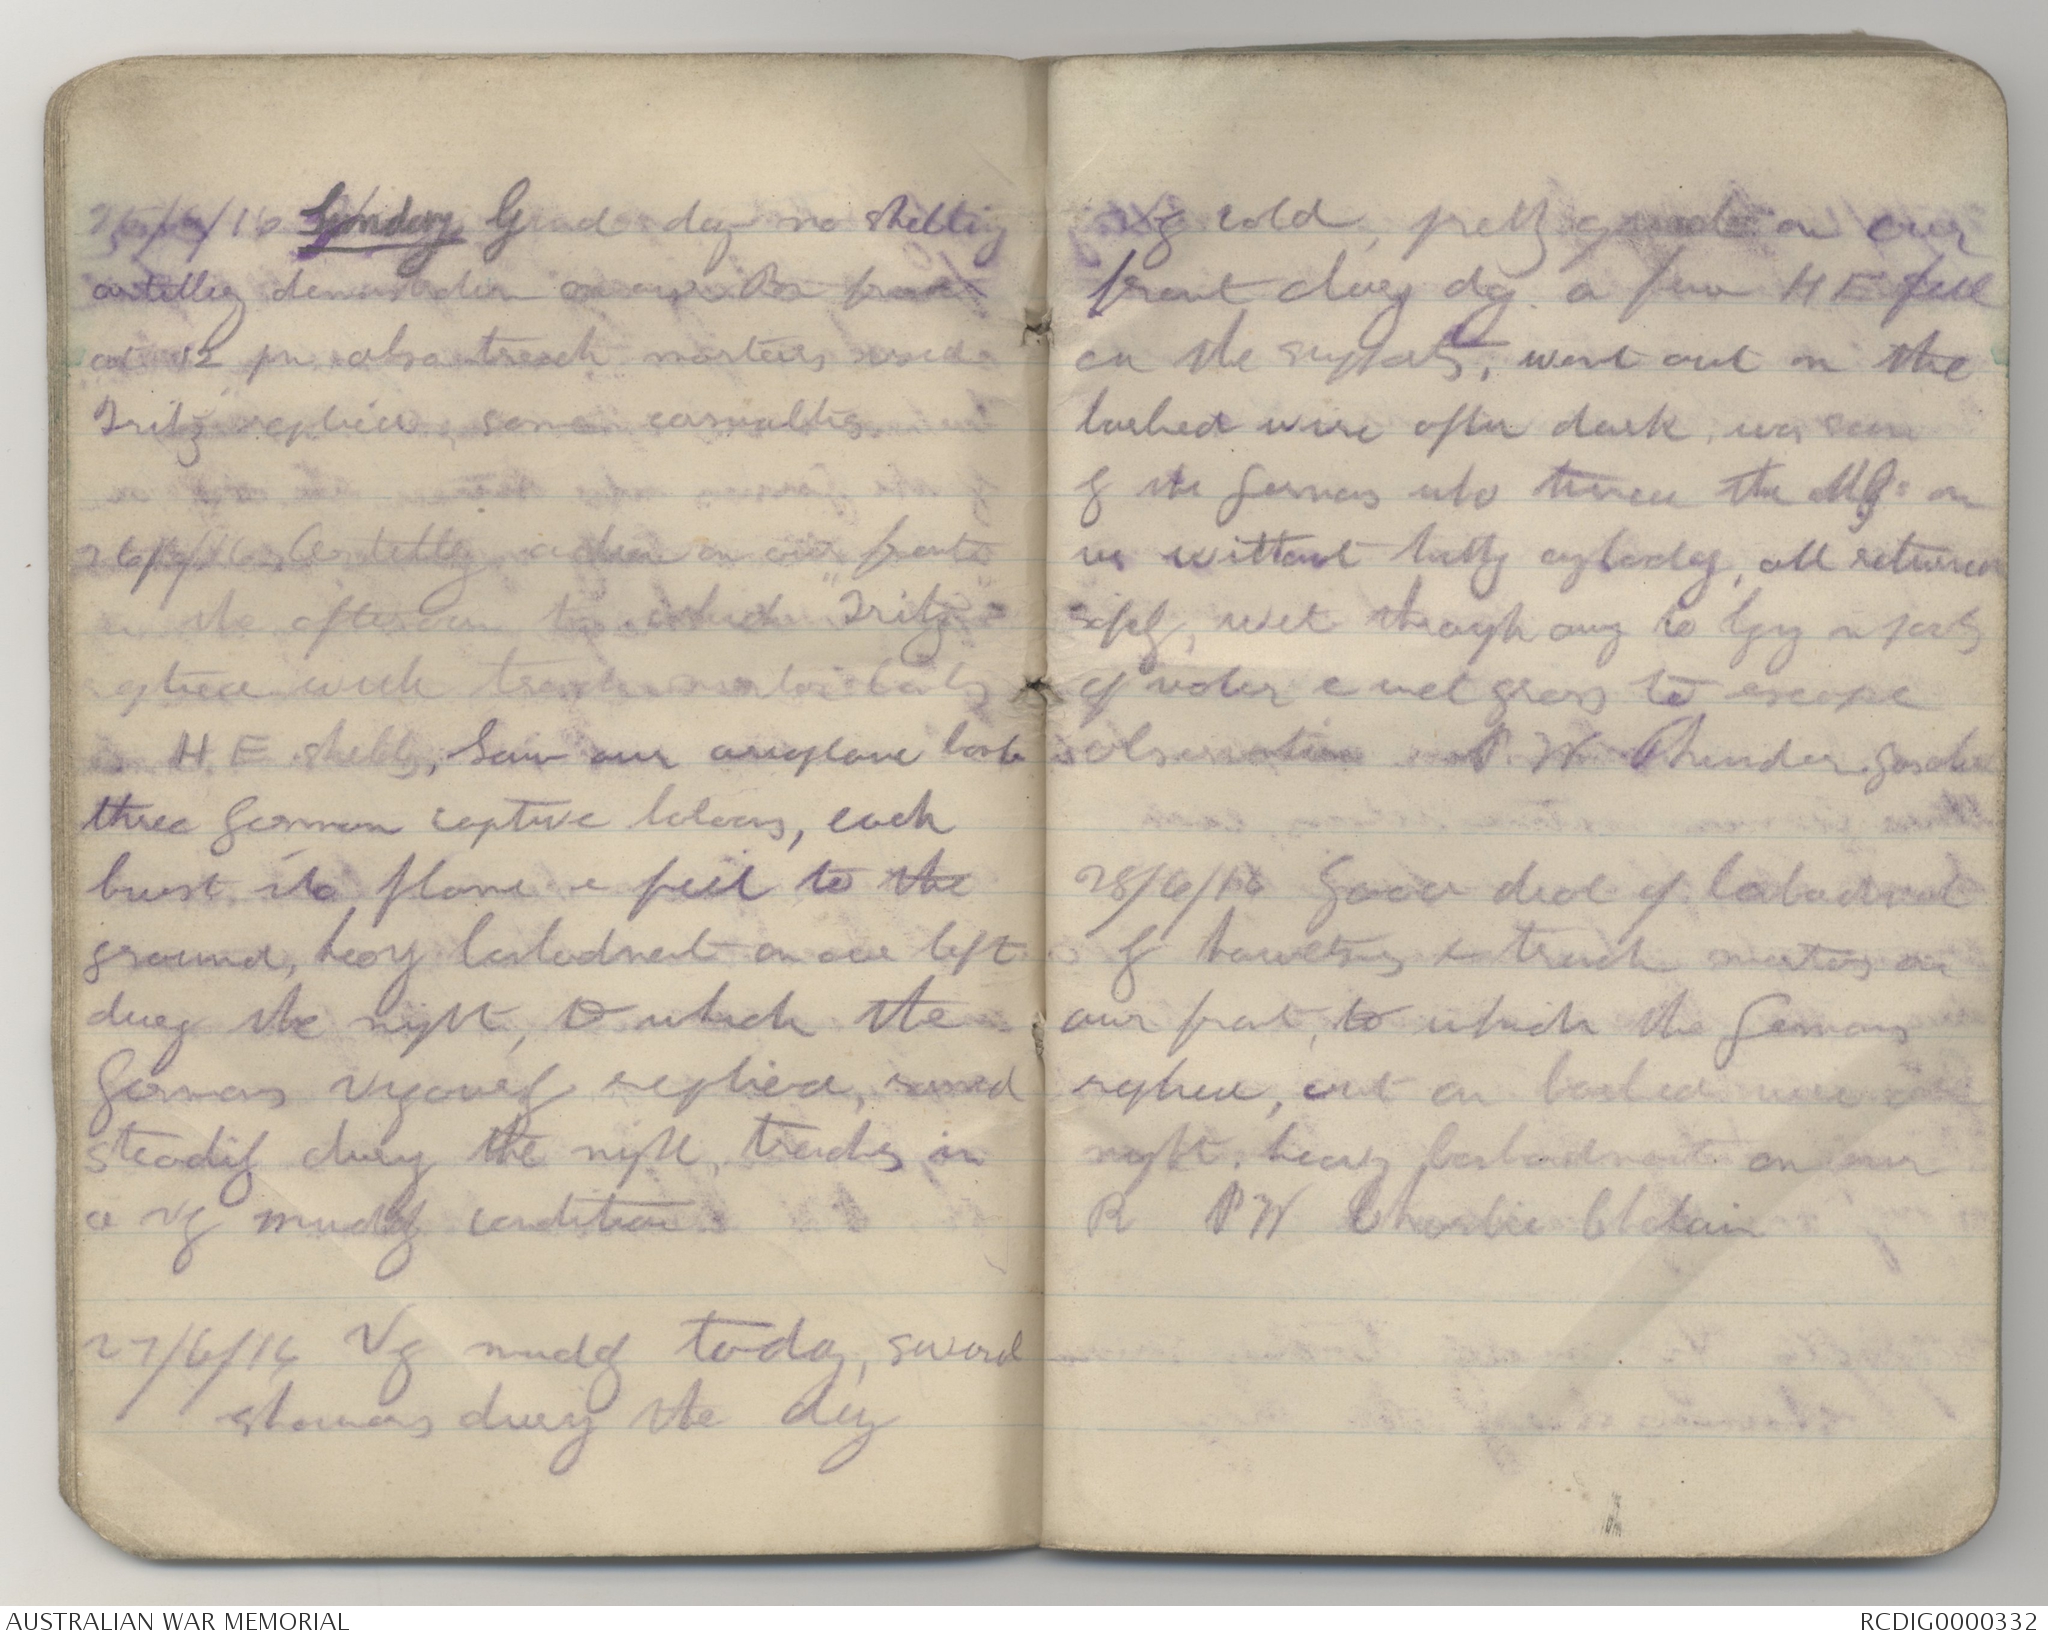 25/6/16 Sunday Good day no shelling
artillery demonstration on our front
at 12 pm also trench mortars used
Fritz replied, some casualties
26/6/16 Artillery action on our front
in the afternoon to which "Fritz"
replied with trench mortar
H.E shells, Saw our aeroplane
three German captive baloons, each
burst ito flame & fell to the
ground, heavy bombardment on our left
during the night, to which the
Germans vigorously replied, rained
steadily during the night, trenches in
a vy muddy condition
27/6/16 Vy muddy today, several
showers during the day
Vy cold, pretty good on our
front during day. a few H E fell
on the supports, went out on the
barbed wire after dark, was seen
by the Germans who turned the M.Gs on
us without hitting anybody, all returned
safely, wet through owing to lying in pools
of water & wet grass to escape
observation P.W.
28/6/16 Good deal of bombardment
of howitzers & trench mortars on
our front, to which the Germans
replied, out on barbed wire
night. heavy bombardment on our
R P W Charlie
AUSTRALIAN WAR MEMORIAL
RCDIG0000332